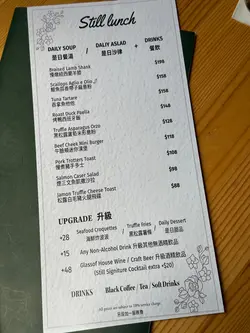 Still lunch
DAILY SOUP / DALIY ASLAD + DRINKS
是日餐湯 / 是日沙律 餐飲
Braised Lamb Shank $198
慢燉紐西蘭羊膝
Scallops Aglio e Olio $158
Tuna Tartare $158
吞拿魚他他
Roast Duck Paella $148
烤鴨西班牙飯
Truffle Asparagus Orzo $128
黑松露蘆筍米形意粉
Beef Cheek Mini Burger $118
牛臉頰迷你漢堡
Pork Trotters Toast $108
慢煮豬手多士
Salmon Caser Salad $98
煙三文魚凱撒沙拉
Jamon Truffle Cheese Toast $88
松露白毛豬火腿飛碟
UPGRADE 升級
+28 Seafood Croquettes / Truffle Fries / Daily Dessert
海鮮炸波波 黑松露薯條 是日甜品
+15 Any Non-Alcohol Drink 升級其他無酒精飲品
+48 Glassof House Wine / Craft Beer 升級酒精飲品
(Still Signiture Cocktail extra +$20)
DRINKS Black Coffee / Tea / Soft Drinks
All price are subject to 10% service charge
另設加一服務費